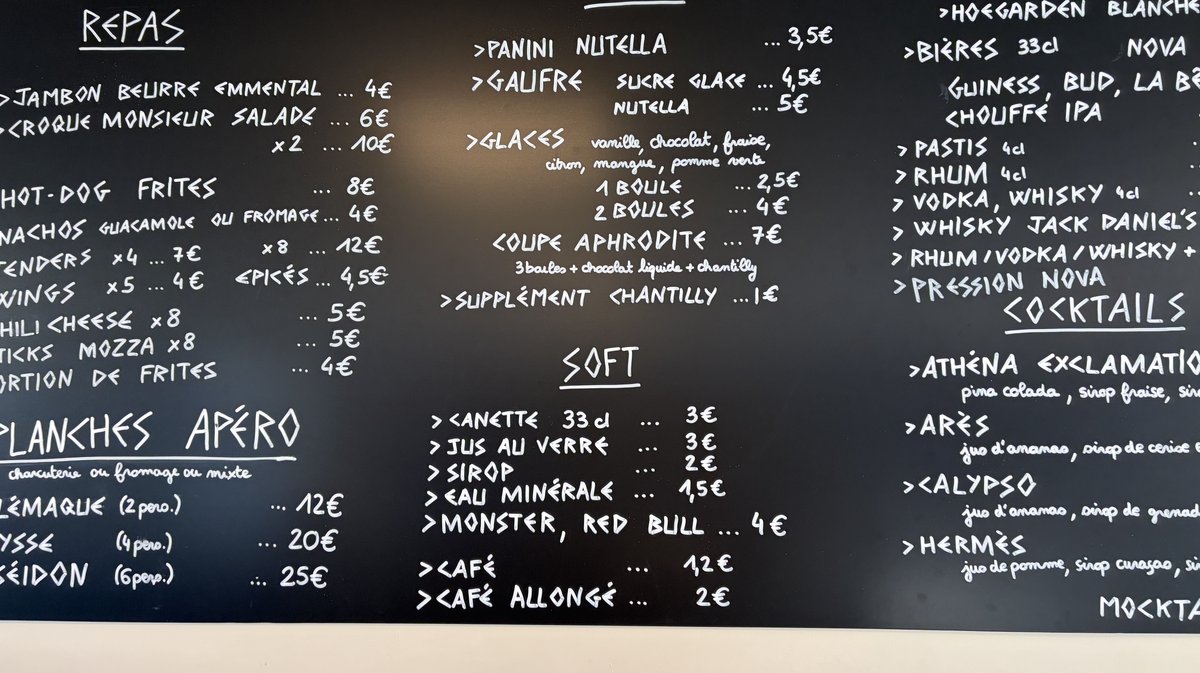 REPAS
>JAMBON BEURRE EMMENTAL ... 4€
>CROQUE MONSIEUR SALADE ... 6€
x2 ... 10€
HOT-DOG FRITES ... 8€
NACHOS GUACAMOLE OU FROMAGE... 4€
TENDERS x4 ... 7€ x8 ... 12€
WINGS x5 ... 4€ EPICÉS ... 4,5€
HILI CHEESE x8 ... 5€
TICKS MOZZA x8 ... 5€
ORTION DE FRITES ... 4€
PLANCHES APÉRO
charcuterie ou fromage ou mixte
LÉMAQUE (2pers.) ... 12€
YSSE (4pers.) ... 20€
SÉIDON (6pers.) ... 25€
>PANINI NUTELLA ... 3,5€
>GAUFRE SUCRE GLACE ... 4,5€
NUTELLA ... 5€
>GLACES vanille, chocolat, fraise,
citron, mangue, pomme verte
1 BOULE ... 2,5€
2 BOULES ... 4€
COUPE APHRODITE ... 7€
3 boules + chocolat liquide + chantilly
>SUPPLÉMENT CHANTILLY ... 1€
SOFT
>CANETTE 33cl ... 3€
>JUS AU VERRE ... 3€
>SIROP ... 2€
>EAU MINÉRALE ... 1,5€
>MONSTER, RED BULL ... 4€
>CAFÉ ... 1,2€
>CAFÉ ALLONGÉ ... 2€
>HOEGARDEN BLANCHE
>BIÈRES 33cl NOVA
GUINESS, BUD, LA BÊ
CHOUFFÉ IPA
>PASTIS 4cl
>RHUM 4cl
>VODKA, WHISKY 4cl
>WHISKY JACK DANIEL'S
>RHUM/VODKA/WHISKY +
>PRESSION NOVA
COCKTAILS
>ATHÉNA EXCLAMATIO
pina colada, sirop fraise, sir
>ARÈS
jus d'ananas, sirop de cerise e
>CALYPSO
jus d'ananas, sirop de grenad
>HERMÈS
jus de pomme, sirop curaçao, si
MOCKTA